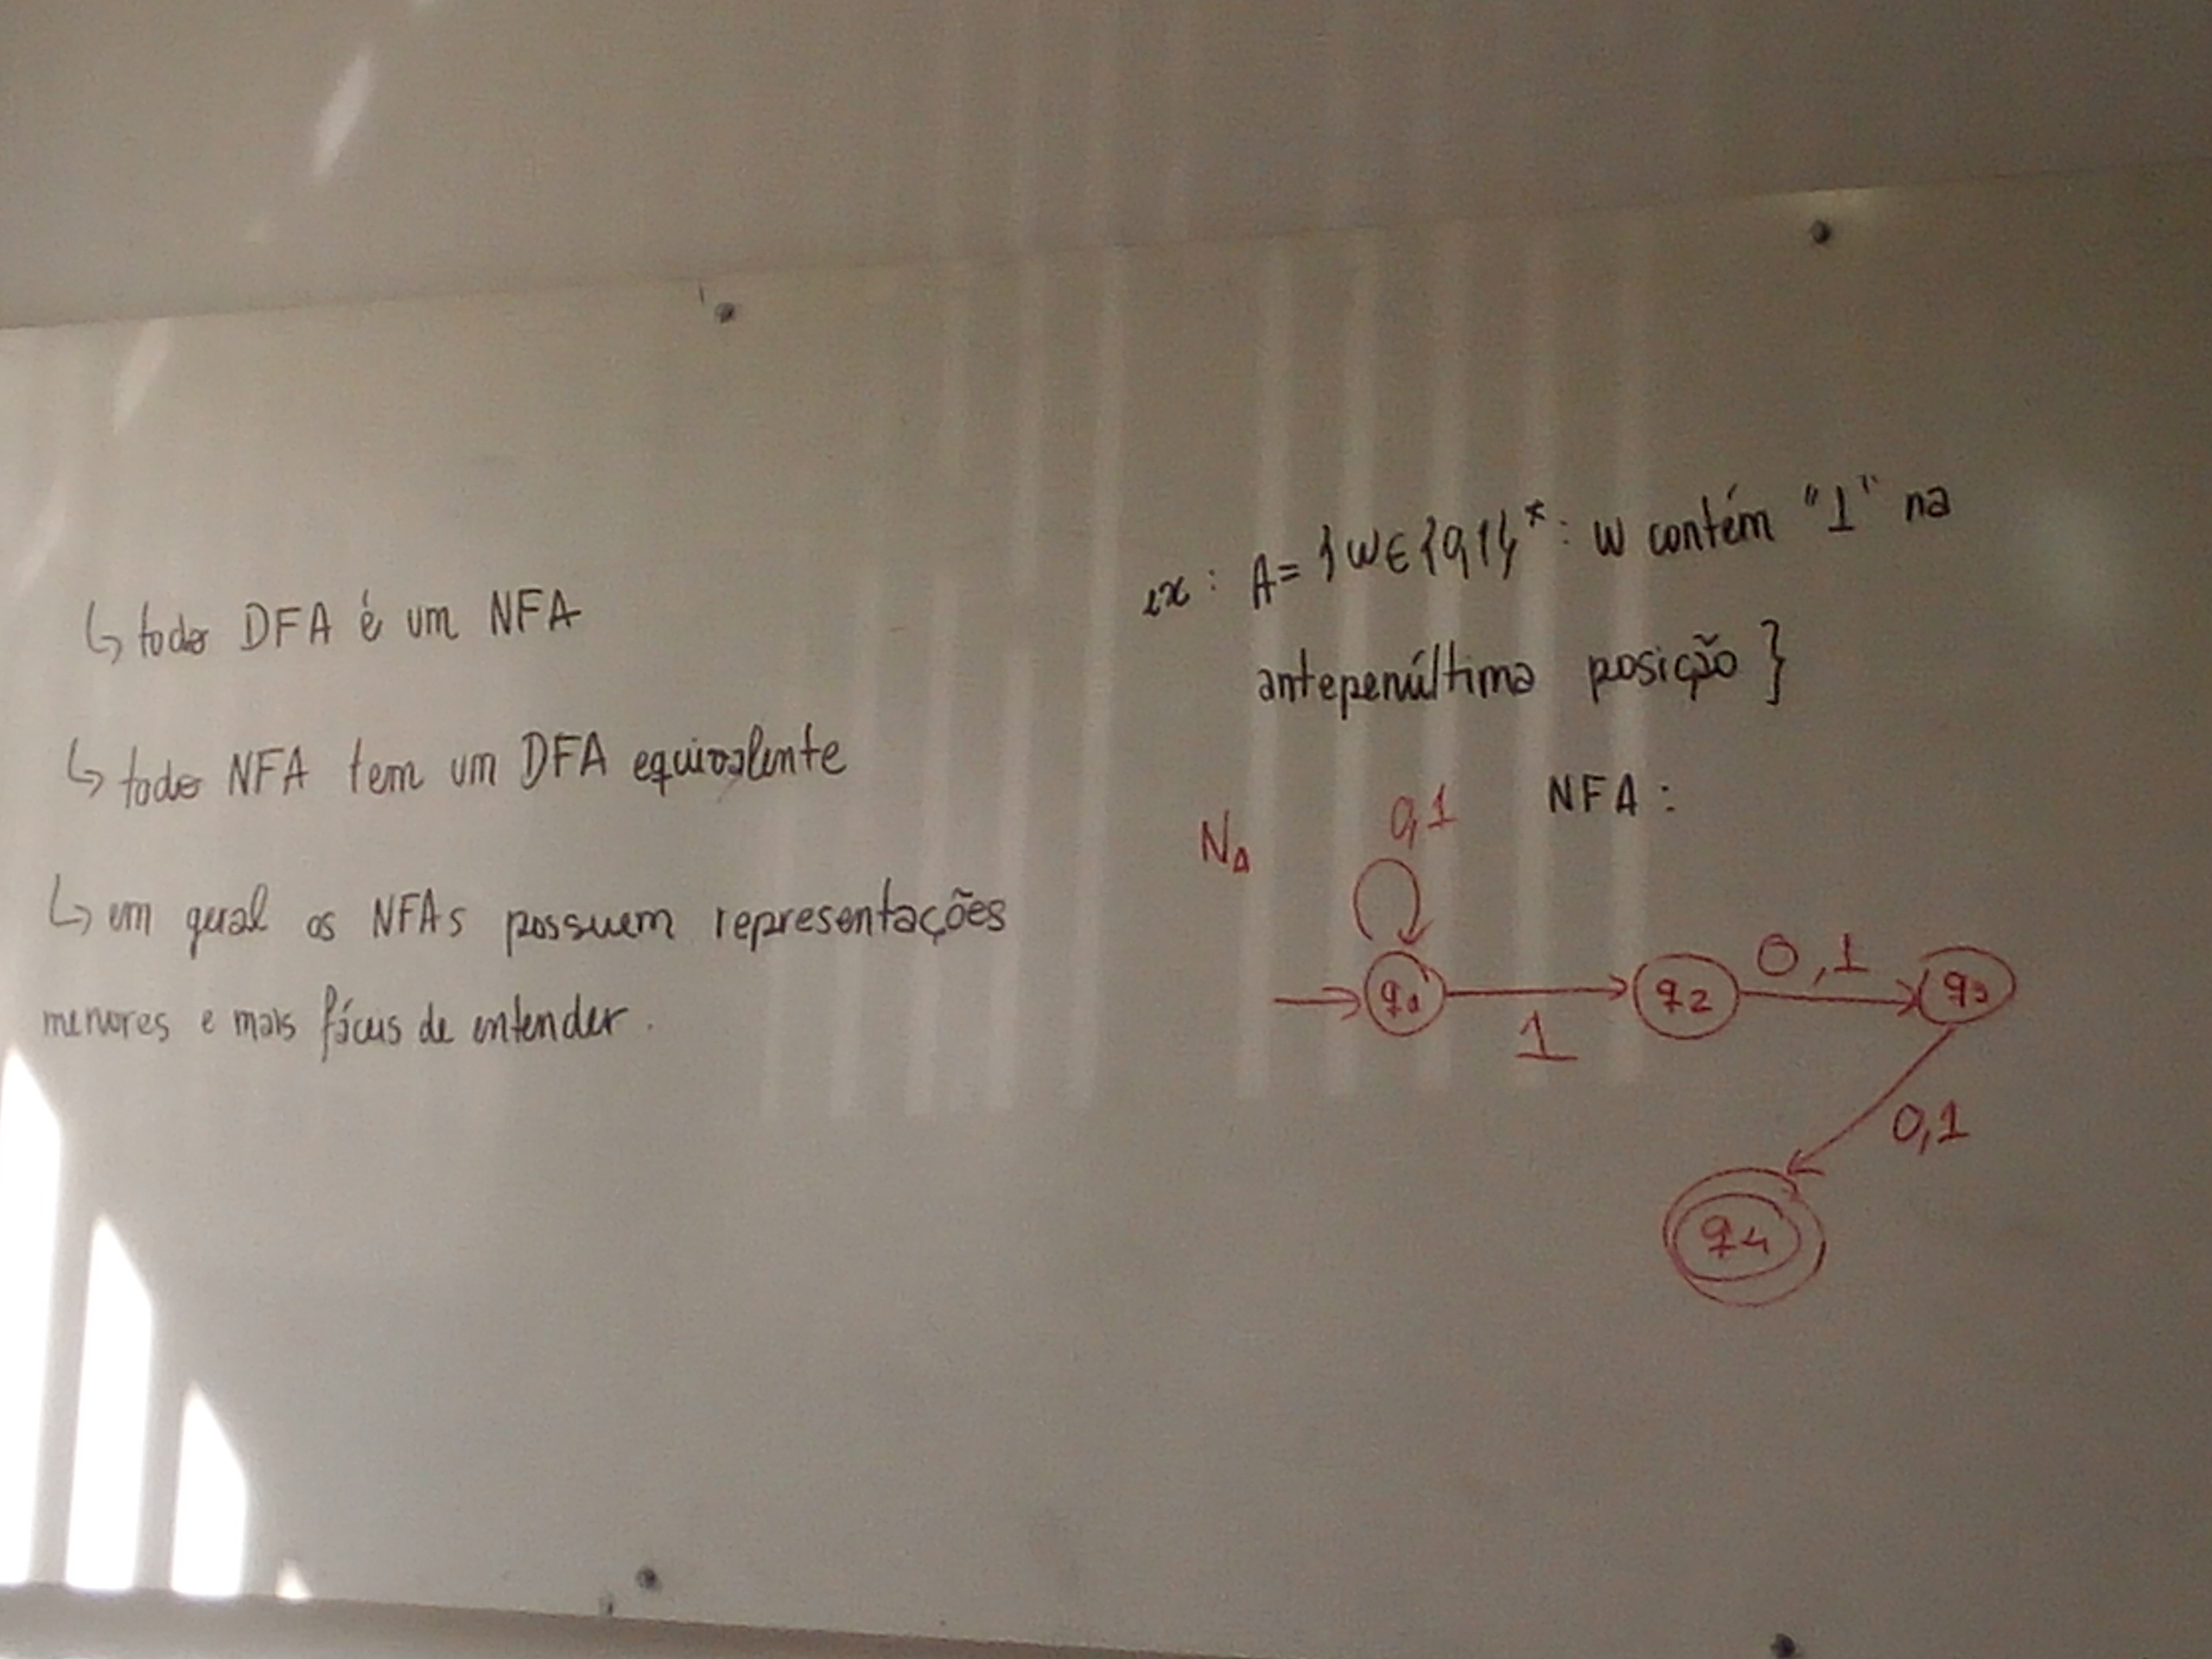 ↳ todo DFA é um NFA
↳ todo NFA tem um DFA equivalente
↳ em geral os NFAs possuem representações
menores e mais fáceis de entender.
ex: A = {w ∈ {0,1}*: w contém "1" na
antepenúltima posição }
NFA:
N_A
0,1
q1
1
q2
0,1
q3
0,1
q4